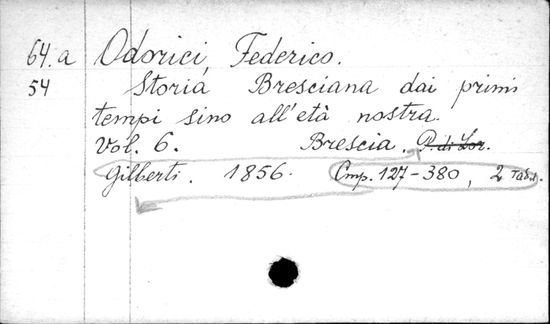 64.a Odorici, Federico.
54 Storia Bresciana dai primi
tempi sino all'età nostra.
Vol. 6. Brescia. P. di Lor.
Gilberti. 1856. Стр. 127-380, 2 табл.